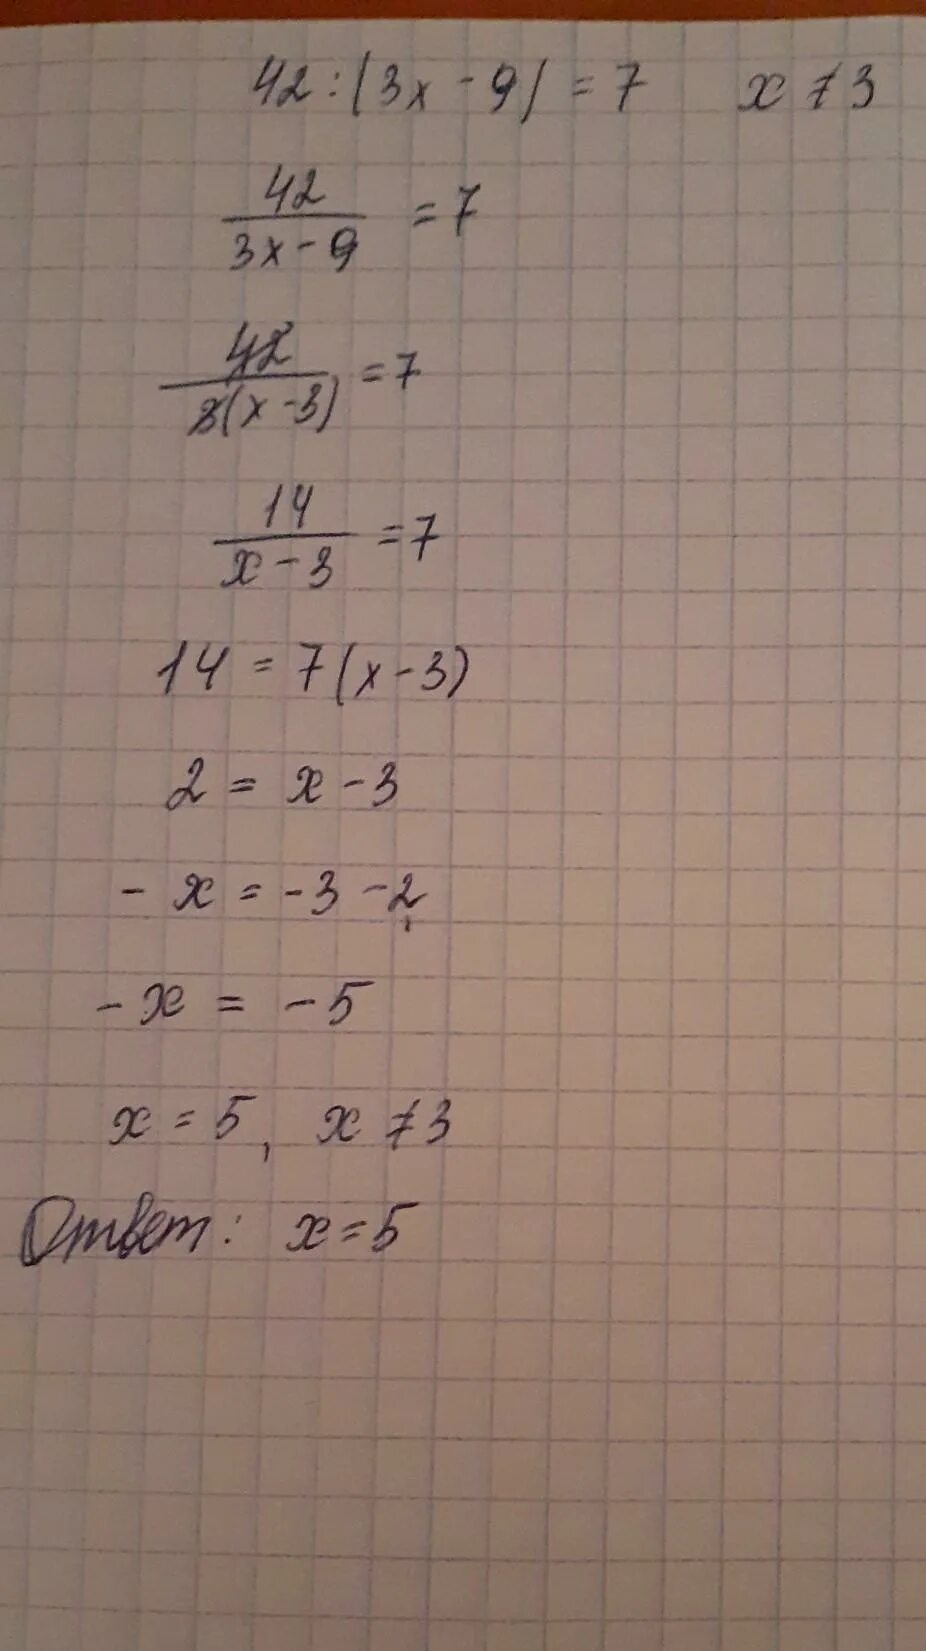 42 : (3x - 9) = 7 x ≠ 3
42
3x - 9 = 7
42
3(x - 3) = 7
14
x - 3 = 7
14 = 7(x - 3)
2 = x - 3
- x = - 3 - 2
- x = - 5
x = 5, x ≠ 3
Ответ: x = 5